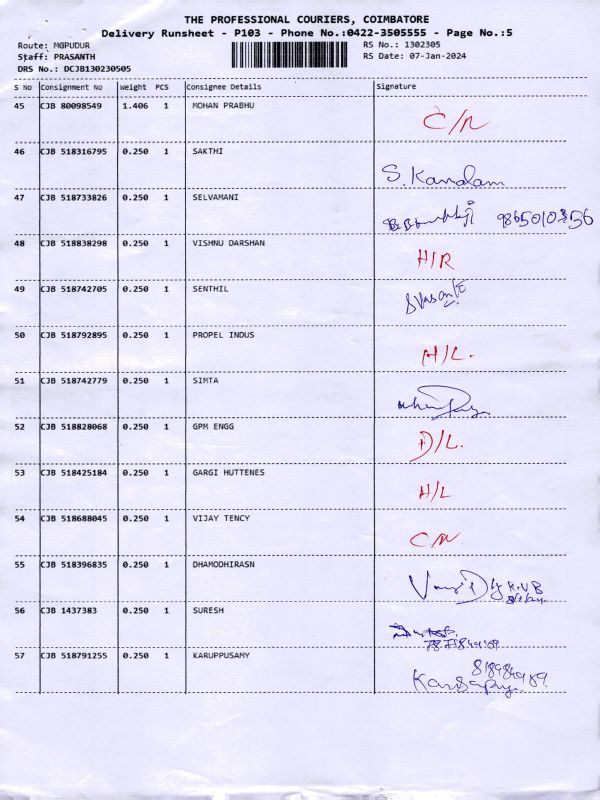 THE PROFESSIONAL COURIERS, COIMBATORE
Delivery Runsheet - P103 - Phone No.:0422-3505555 - Page No.:5
Route: MGPUDUR RS No.: 1302305
Staff: PRASANTH RS Date: 07-Jan-2024
DRS No.: DCJB130230505
S No Consignment No Weight PCS Consignee Details Signature
45 CJB 80098549 1.406 1 MOHAN PRABHU C/N
46 CJB 518316795 0.250 1 SAKTHI S. Kandam
47 CJB 518733826 0.250 1 SELVAMANI
48 CJB 518838298 0.250 1 VISHNU DARSHAN H/R
49 CJB 518742705 0.250 1 SENTHIL
50 CJB 518792895 0.250 1 PROPEL INDUS H/L.
51 CJB 518742779 0.250 1 SIMTA
52 CJB 518828068 0.250 1 GPM ENGG D/L.
53 CJB 518425184 0.250 1 GARGI HUTTENES H/L
54 CJB 518688045 0.250 1 VIJAY TENCY C/N
55 CJB 518396835 0.250 1 DHAMODHIRASN
56 CJB 1437383 0.250 1 SURESH
57 CJB 518791255 0.250 1 KARUPPUSAMY